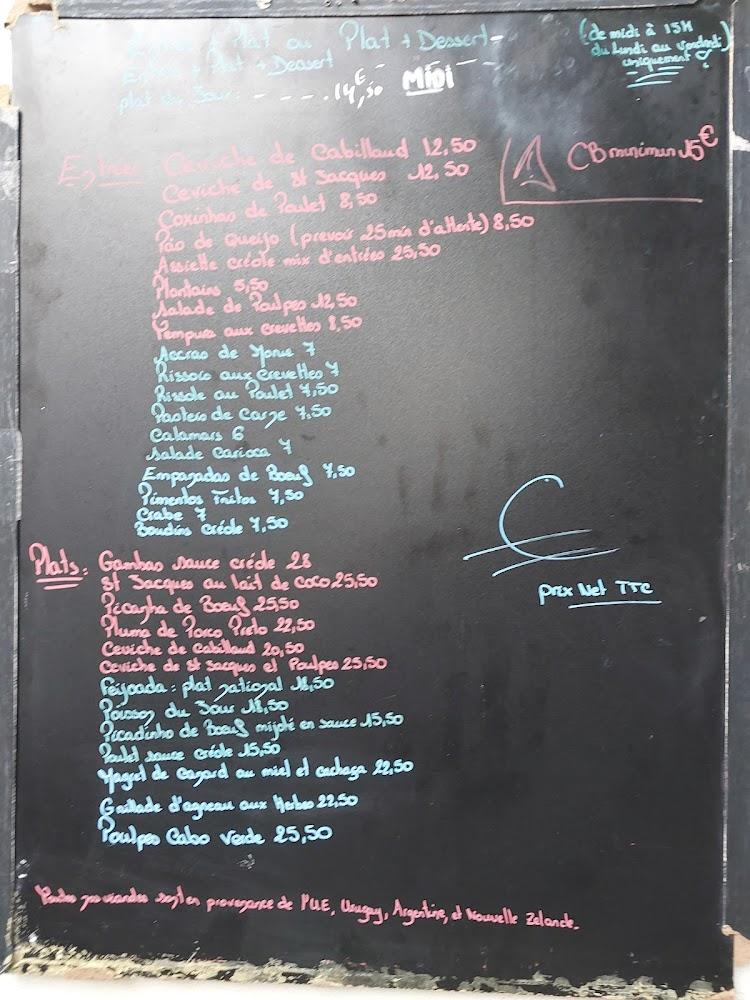 Plat ou Plat + Dessert -
Entrée + Plat + Dessert - - -
plat du Jour : - - - . 14€,50 Midi
(de midi à 15H
du Lundi au vendredi)
uniquement !
CB minimun 15€
Entrées Ceviche de Cabillaud 12,50
Ceviche de St Jacques 12,50
Coxinhas de Poulet 8,50
Pão de Queijo (prevoir 25min d'attente) 8,50
Assiette créole mix d'entrées 25,50
Plantains 5,50
Salade de Poulpes 12,50
Tempura aux crevettes 8,50
Accras de Morue 7
Rissois aux crevettes 7
Rissole au Poulet 7,50
Pasteis de Carne 7,50
Calamars 6
Salade Carioca 7
Empanadas de Boeuf 7,50
Pimentos Fritos 7,50
Crabe 7
Boudins créole 7,50
Plats : Gambas sauce créole 28
St Jacques au lait de coco 25,50
Picanha de Boeuf 25,50
Pluma de Porco Preto 22,50
Ceviche de cabillaud 20,50
Ceviche de St Jacques et Poulpes 25,50
Feijoada : plat national 18,50
Poisson du Jour 18,50
Picadinho de Boeuf mijoté en sauce 15,50
Poulet sauce créole 15,50
Magret de canard au miel et cachaça 22,50
Grillade d'agneau aux Herbes 22,50
Poulpes Cabo Verde 25,50
prix Net TTC
Toutes nos viandes sont en provenance de l'UE, Uruguay, Argentine, et Nouvelle Zelande.